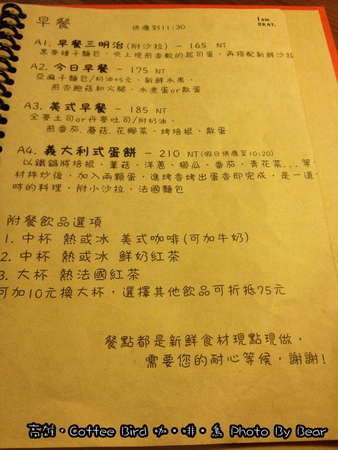 早餐
供應到11:30
I am OKAY.
A1. 早餐三明治(附沙拉) - 165 NT
黑麥種子麵包,夾上現煎香軟的起司蛋,再搭配新鮮沙拉
A2. 今日早餐 - 175 NT
亞麻子麵包/奶油+5元、新鮮水果、
煎杏鮑菇和火腿、水煮蛋or歐蛋
A3. 美式早餐 - 185 NT
全麥土司or丹麥吐司/附奶油、
煎番茄、蘑菇、花椰菜、烤培根、歐蛋
A4. 義大利式蛋餅 - 210 NT(假日供應至10:20)
以鐵鍋將培根、蕈菇、洋蔥、櫛瓜、番茄、青花菜...等
材拌炒後,加入兩顆蛋,進烤香烤出蛋香即完成,是一道
時的料理,附小沙拉、法國麵包
附餐飲品選項
1. 中杯 熱或冰 美式咖啡(可加牛奶)
2. 中杯 熱或冰 鮮奶紅茶
3. 大杯 熱法國紅茶
可加10元換大杯,選擇其他飲品可折抵75元
餐點都是新鮮食材現點現做,
需要您的耐心等候,謝謝!
高雄・Coffee Bird 咖・啡・鳥 Photo By Bear